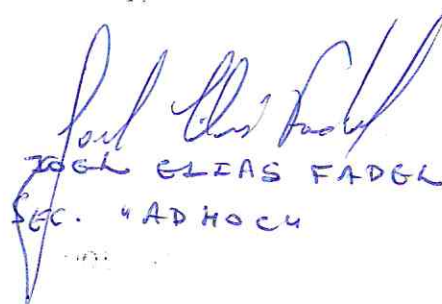 Joel Elias Fadel
JOEL ELIAS FADEL
SEC. "AD HOC"